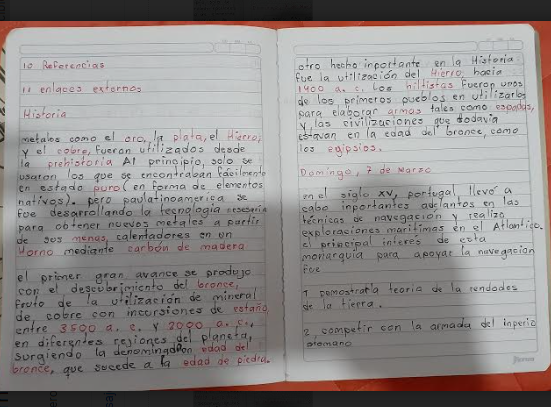 10 Referencias
11 enlaces externos
Historia
metales como el oro, la plata, el Hierro,
y el cobre, fueron utilizados desde
la prehistoria Al principio, solo se
usaron los que se encontraban facilmente
en estado puro (en forma de elementos
nativos). pero paulatinoamerica se
fue desarrollando la tecnologia nesesaria
para obtener nuevos metales a partir
de sus menas, calentadores en un
Horno mediante carbón de madera
el primer gran avance se produjo
con el descubrimiento del bronce,
fruto de la utilización de mineral
de cobre con incursiones de estaño,
entre 3500 a. c. y 2000 a. c.,
en diferentes resiones del planeta,
surgiendo la denominación edad del
bronce, que sucede a la edad de piedra.
otro hecho inportante en la Historia
fue la utilización del Hierro, hacia
1400 a. c. Los hititistas fueron unos
de los primeros pueblos en utilizarlos
para elaborar armas tales como espadas,
y las civilizaciones que todavia
estavan en la edad del bronce, como
los egipsios.
Domingo, 7 de Marzo
en el siglo XV, portugal, llevó a
cabo inportantes adelantos en las
técnicas de navegación y realizo
exploraciones maritimas en el Atlantico.
el principal interes de esta
monarquia para apoyar la navegación
fue
1 Demostrar la teoria de la rendades
de la tierra.
2 competir con la armada del inperio
otomano